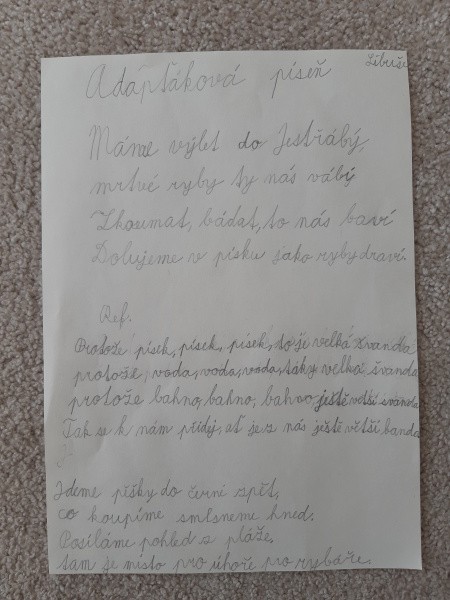 Libuše
Adapťáková píseň
Máme výlet do Jestřábý,
mrtvé ryby ty nás vábý
Zkoumat, bádat, to nás baví
Dolujeme v písku jako ryby draví.
Ref.
Protože písek, písek, písek, to je velká švanda
protože, voda, voda, voda, táky velká švanda
protože bahno, bahno, bahno, ještě větší švanda
Tak se k nám přidej, ať je z nás ještě větší banda
Jdeme pěšky do černé zpět,
co koupíme smlsneme hned.
Posíláme pohled z pláže,
tam je místo pro úhoře pro rybáře.